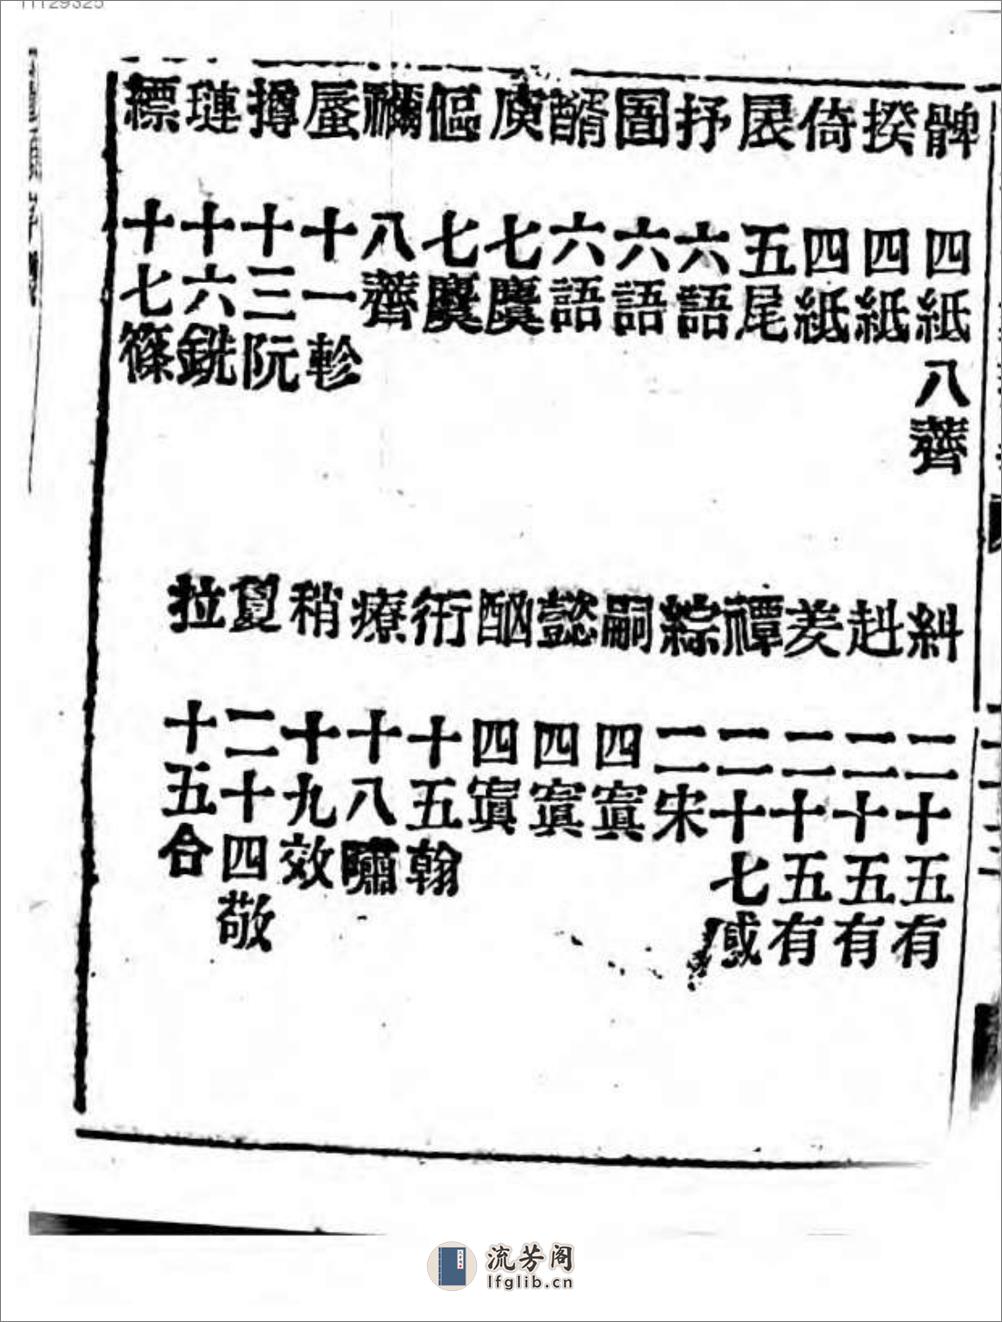 髀 四紙八薺
揆 四紙
倚 四紙
扆 五尾
抒 六語
圄 六語
醑 六語
庾 七麌
傴 七麌
禰 八薺
蜃 十一軫
撙 十三阮
璉 十六銑
縹 十七篠
糾 二十五有
赳 二十五有
羑 二十五有
禫 二十七感
綜 二宋
嗣 四寘
懿 四寘
四寘
衎 十五翰
療 十八嘯
稍 十九效
敻 二十四敬
拉 十五合
流芳阁
lfglib.cn